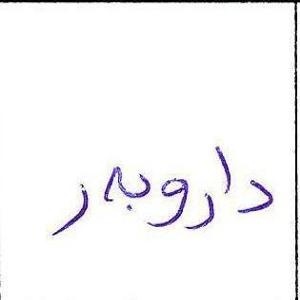 داروبەر